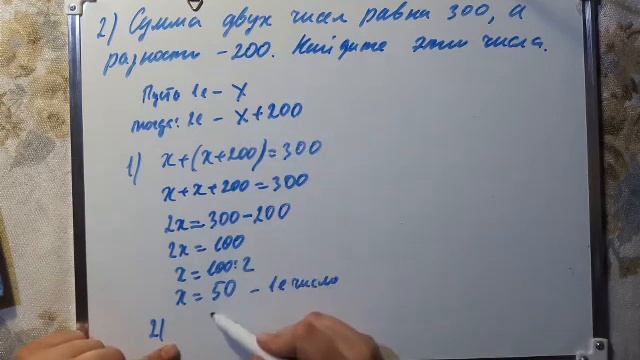 2) Сумма двух чисел равна 300, а
разность -200. Найдите эти числа.
Пусть 1е - x
тогда: 2е - x+200
1) x+(x+200)=300
x+x+200=300
2x=300-200
2x=100
x=100:2
x=50 - 1е число
2)